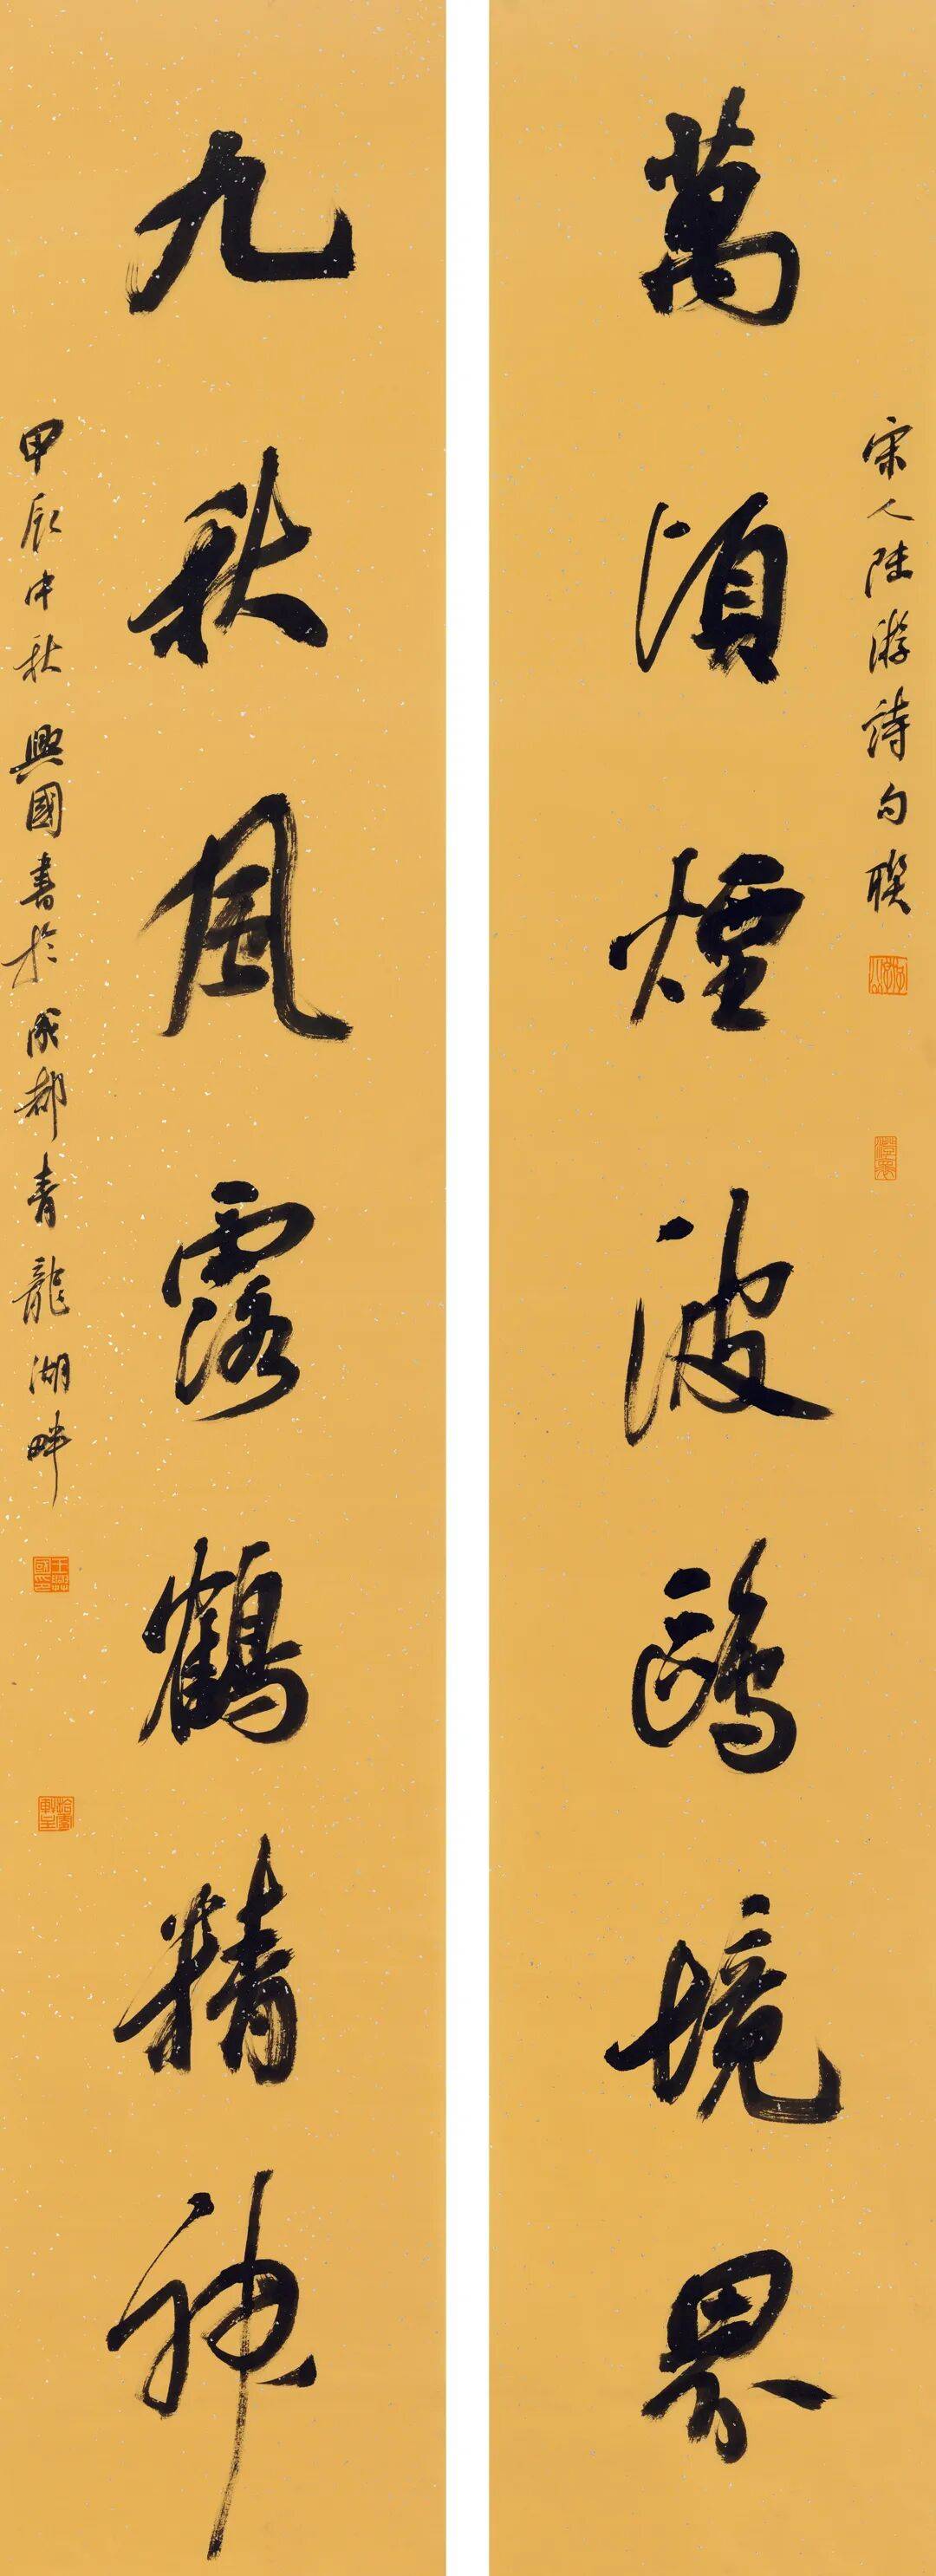 宋人陸游詩句聯
萬頃煙波鷗境界
九秋風露鶴精神
甲辰中秋興國書於成都青龍湖畔